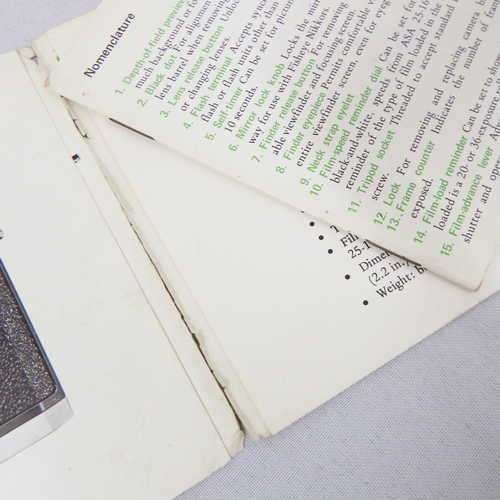 Nomenclature
1. Depth of field preview
2. Black dot For alignment
much back before or
lens barrel when removing
or changing lenses.
3. Lens release button Unlocks
4. Flash terminal Accepts sync
flash or flash units other than
5. Self timer Can be set for
10 seconds.
6. Mirror lock knob Locks the mirror
way for use with Fisheye Nikkors.
7. Finder release button For removing
able viewfinder and focusing screen
8. Finder eyepiece Permits comfortable
entire viewfinder screen, even for
9. Neck strap eyelet
10. Film-speed reminder dial Can be set for
black-and-white, speeds from ASA 25-16
reminder of the type of film loaded in the
11. Tripod socket Threaded to accept standard
screw.
12. Lock For removing and replacing camera
13. Frame counter Indicates the number of
exposed.
14. Film-load reminder Can be set to
loaded is a 20- or 36-exposure
15. Film-advance lever
shutter and
• Film
25-1
• Dimen
(2.2 in.)
• Weight: